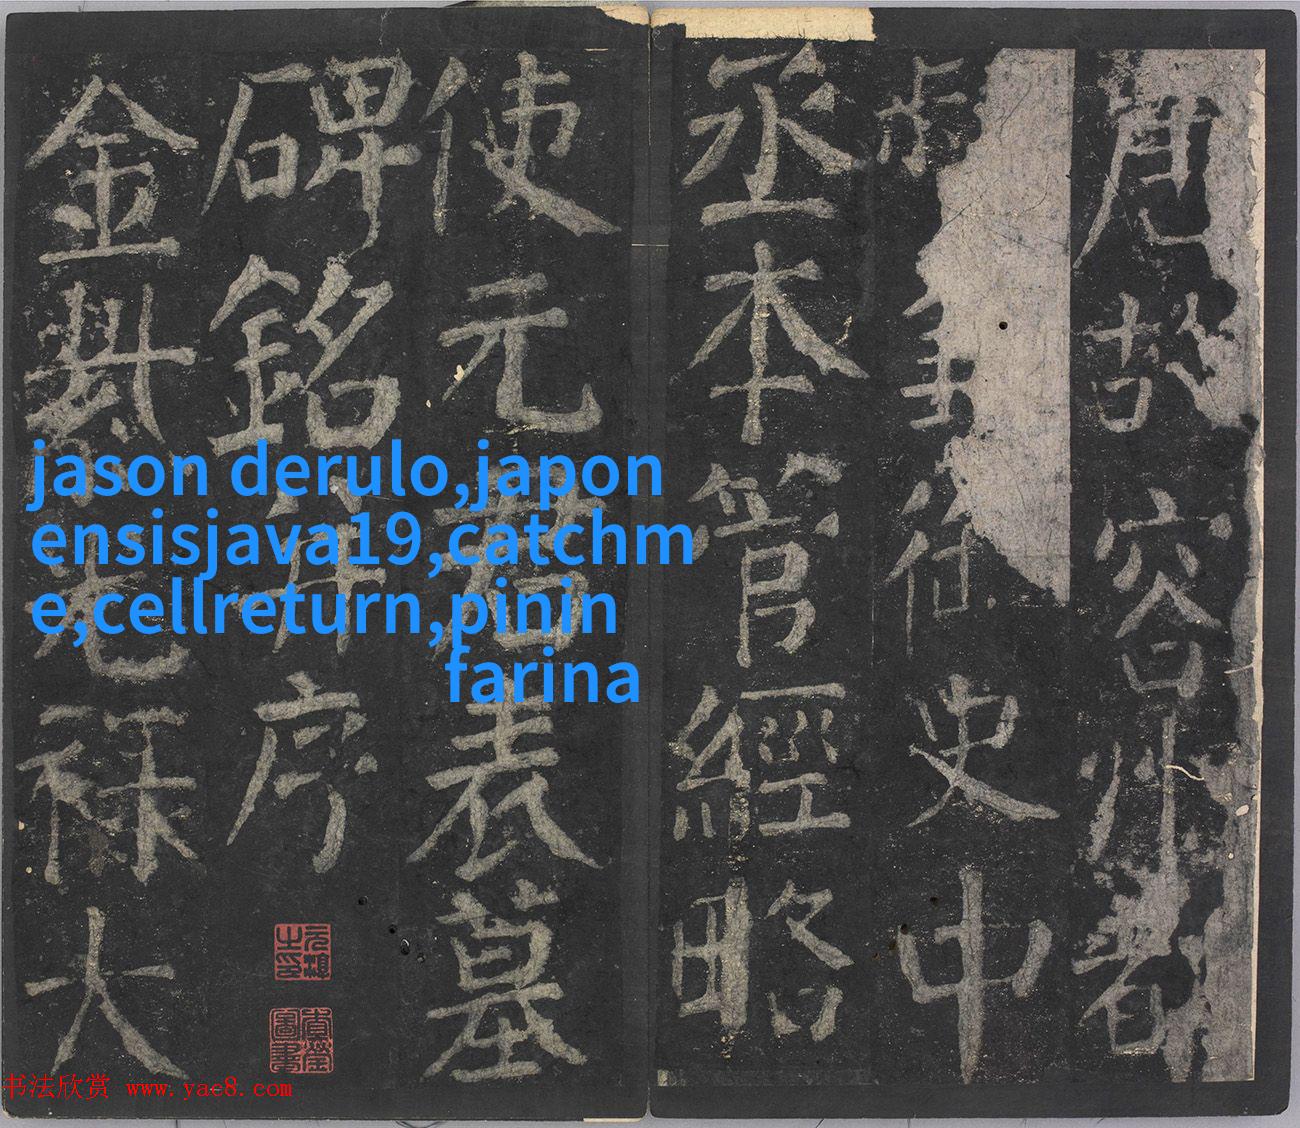 唐故容州都
御史中
丞本管經略
使元君表墓
碑銘并序
金紫光祿大
jason derulo,japon
ensisjava19,catchm
e,cellreturn,pinin
farina
书法欣赏 www.yac8.com